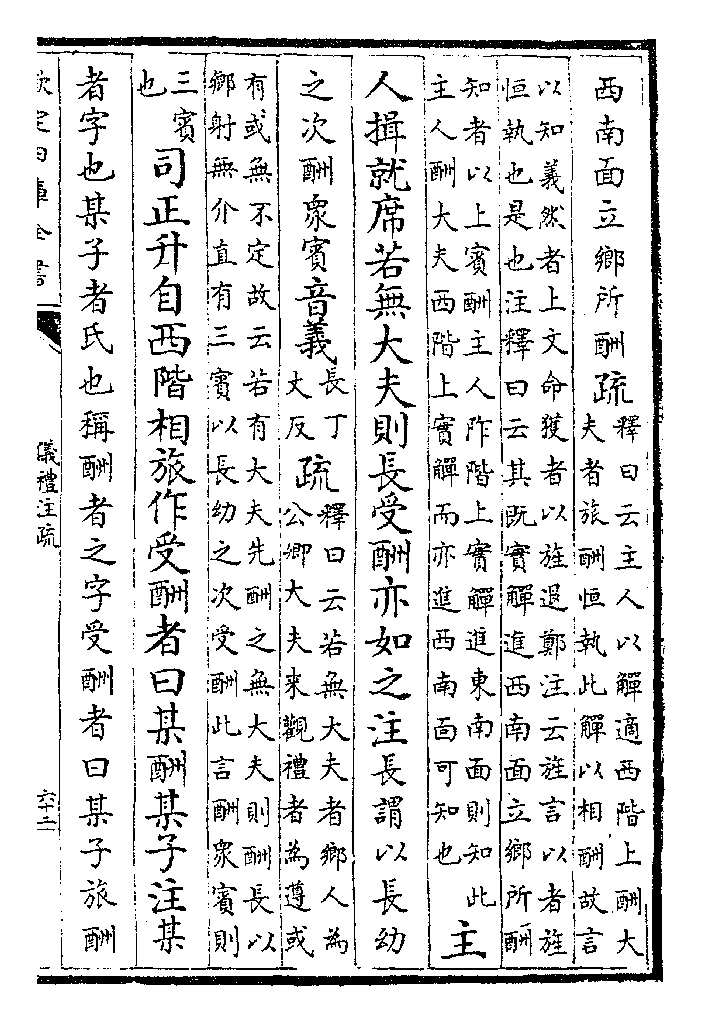 西南面立鄉所酬疏
釋曰云主人以觶適西階上酬大
夫者旅酬恒執此觶以相酬故言
以知義然者上文命獲者以旌退鄭注云旌言以者旌
恒執也是也注釋曰云其既實觶進西南面立鄉所酬
知者以上賓酬主人阼階上實觶進東南面則知此
主人酬大夫西階上實觶而亦進西南面可知也
主
人揖就席若無大夫則長受酬亦如之注長謂以長幼
之次酬衆賓音義
長丁
丈反
疏
釋曰云若無大夫者鄉人為
公卿大夫來觀禮者為遵或
有或無不定故云若有大夫先酬之無大夫則酬長以
鄉射無介直有三賓以長幼之次受酬此言酬衆賓則
三賓
也
司正升自西階相旅作受酬者曰某酬某子注某
者字也某子者氏也稱酬者之字受酬者曰某子旅酬
欽定四庫全書
儀禮注疏
六十二